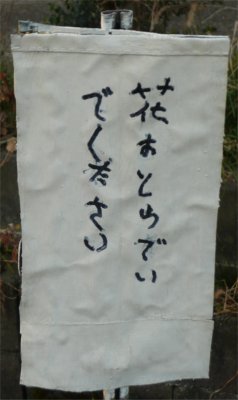 花おとらでい
でください